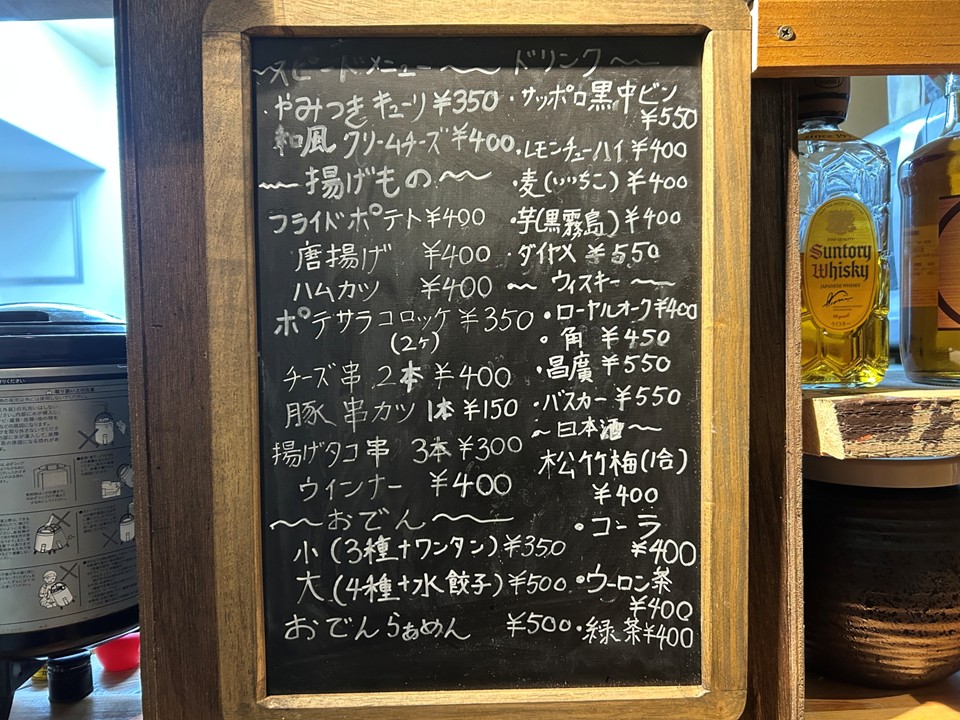 〜スピードメニュー〜
・やみつきキューリ ¥350
和風クリームチーズ ¥400
〜揚げもの〜
フライドポテト ¥400
唐揚げ ¥400
ハムカツ ¥400
ポテサラコロッケ ¥350
(2ヶ)
チーズ串 2本 ¥400
豚串カツ 1本 ¥150
揚げタコ串 3本 ¥300
ウインナー ¥400
〜おでん〜
小(3種+ワンタン) ¥350
大(4種+水餃子) ¥500
おでんらぁめん ¥500
ドリンク〜
・サッポロ黒中ビン
¥550
・レモンチューハイ ¥400
・麦(いいちこ) ¥400
・芋(黒霧島) ¥400
・ダイヤメ ¥550
〜ウィスキー〜
・ローヤルオーク ¥400
・角 ¥450
・昌廣 ¥550
・バスカー ¥550
〜日本酒〜
松竹梅(1合)
¥400
・コーラ
¥400
・ウーロン茶
¥400
・緑茶 ¥400
Suntory
Whisky
JAPANESE WHISKY